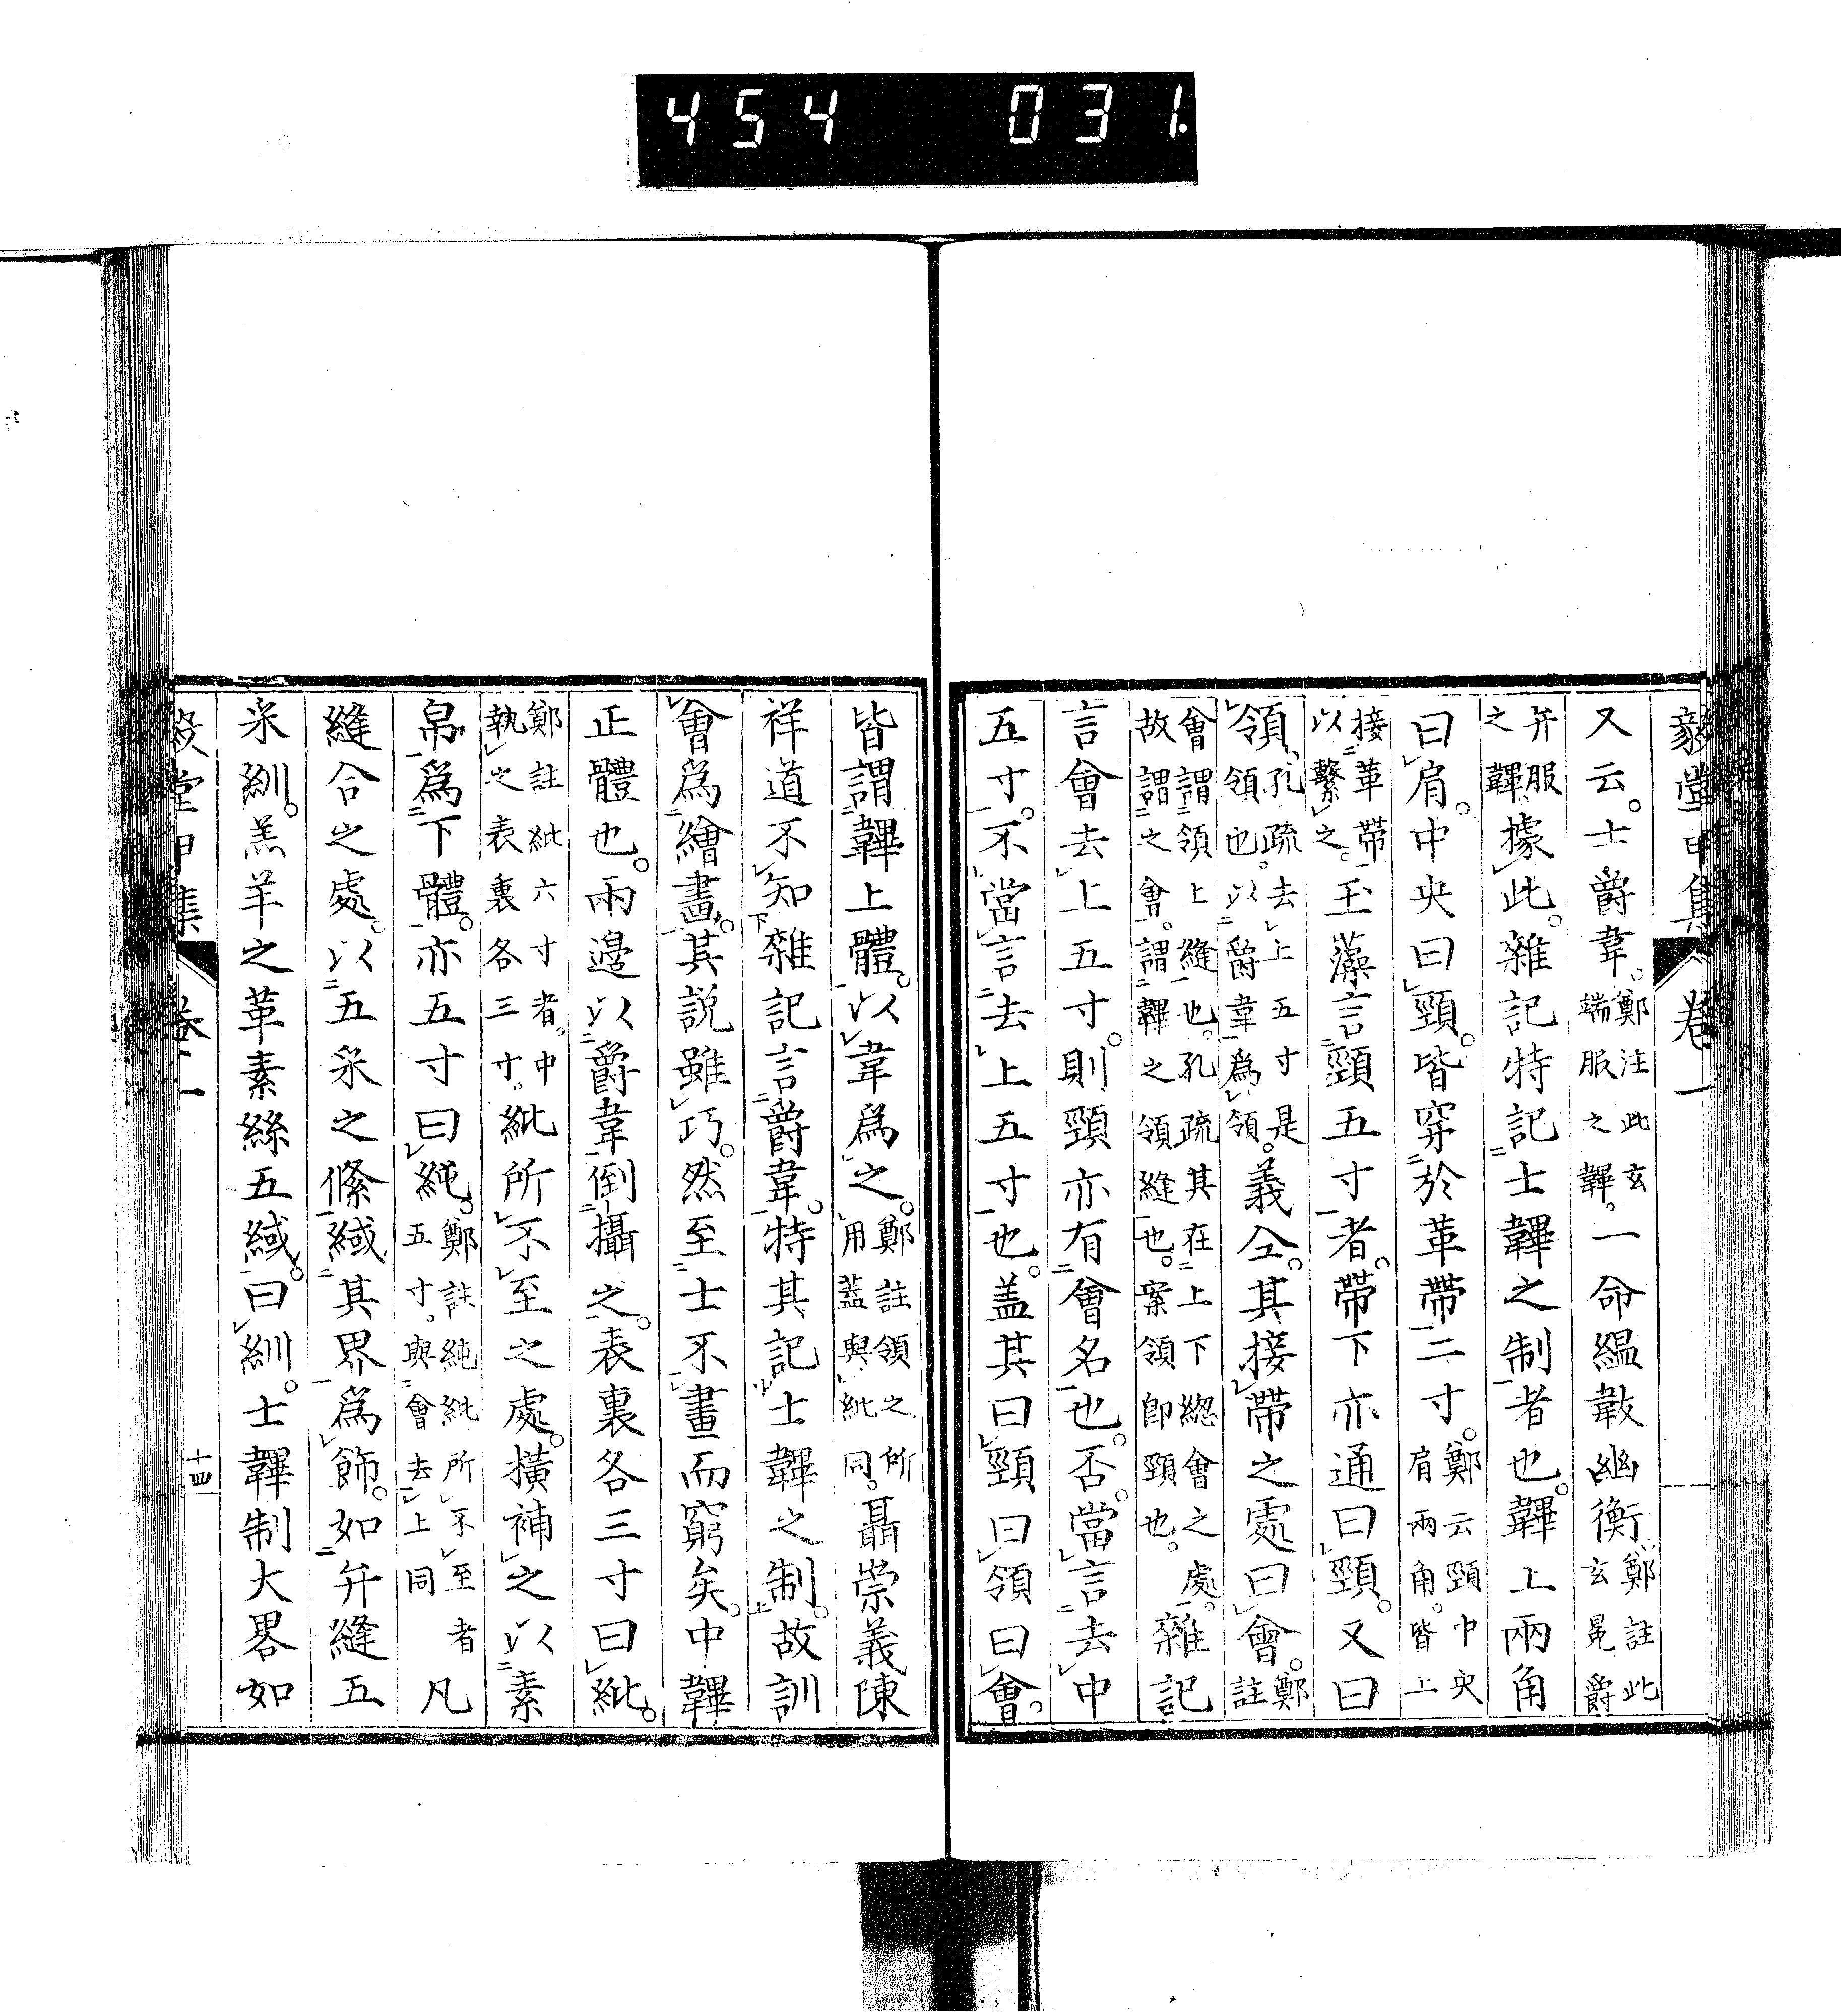 454 031.
毅堂甲集 卷一
又云。士爵韋。鄭注此玄端服之韠。一命縕韍幽衡鄭註此玄冕爵
弁服之韠。據此。雜記特記士韠之制者也。韠上兩角
曰肩。中央曰頸。皆穿於革帶二寸。鄭云頸中央肩兩角。皆上
接革帶以繫之。玉藻言頸五寸者。帶下亦通曰頸。又曰
領。孔疏去上五寸是領也。以爵韋爲領。義仝。其接帶之處曰會。鄭註
會謂領上縫也。孔疏其在上下緫會之處。故謂之會。謂韠之領縫也。案領卽頸也。雜記
言會去上五寸。則頸亦有會名也。否。當言去中
五寸。不當言去上五寸也。盖其曰頸曰領曰會。
皆謂韠上體。以韋爲之。鄭註領之所用蓋與紕同。聶崇義陳
祥道不知雜記言爵韋。特其記士韠之制。故訓
會爲繪畫。其説雖巧。然至士不畫而窮矣。中韠
正體也。兩邊以爵韋倒攝之。表裏各三寸曰紕。
鄭註紕六寸者。中執之表裏各三寸。紕所不至之處。橫補之以素
帛爲下體。亦五寸曰純。鄭註純紕所不至者五寸。與會去上同凡
縫合之處。以五采之絛緎其界爲飾。如弁縫五
采紃。羔羊之革素絲五緎。曰紃。士韠制大畧如
毅堂甲集 卷一 十四